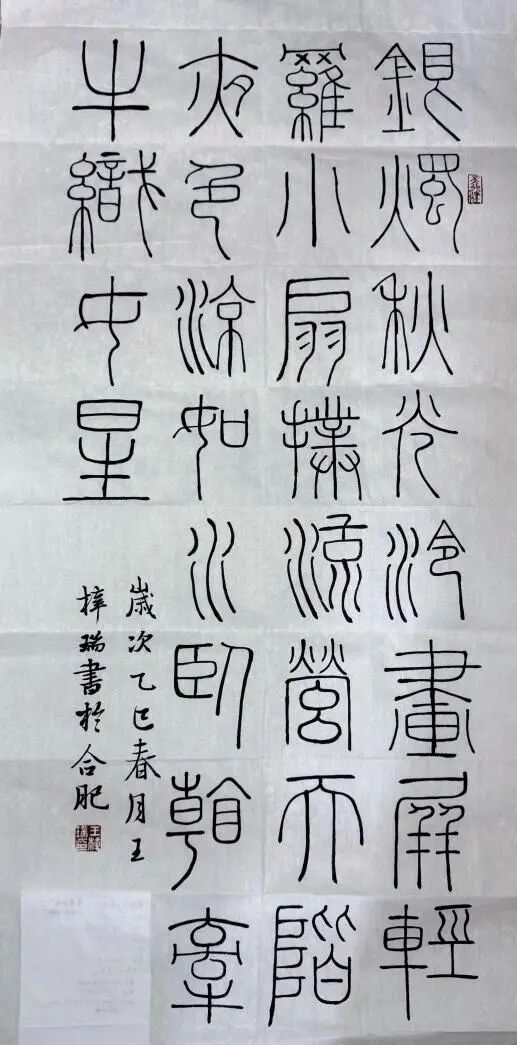 銀燭秋光冷畫屏輕
羅小扇撲流螢天階
夜色涼如水臥看牽
牛織女星
歲次乙巳春月王
梓瑞書於合肥